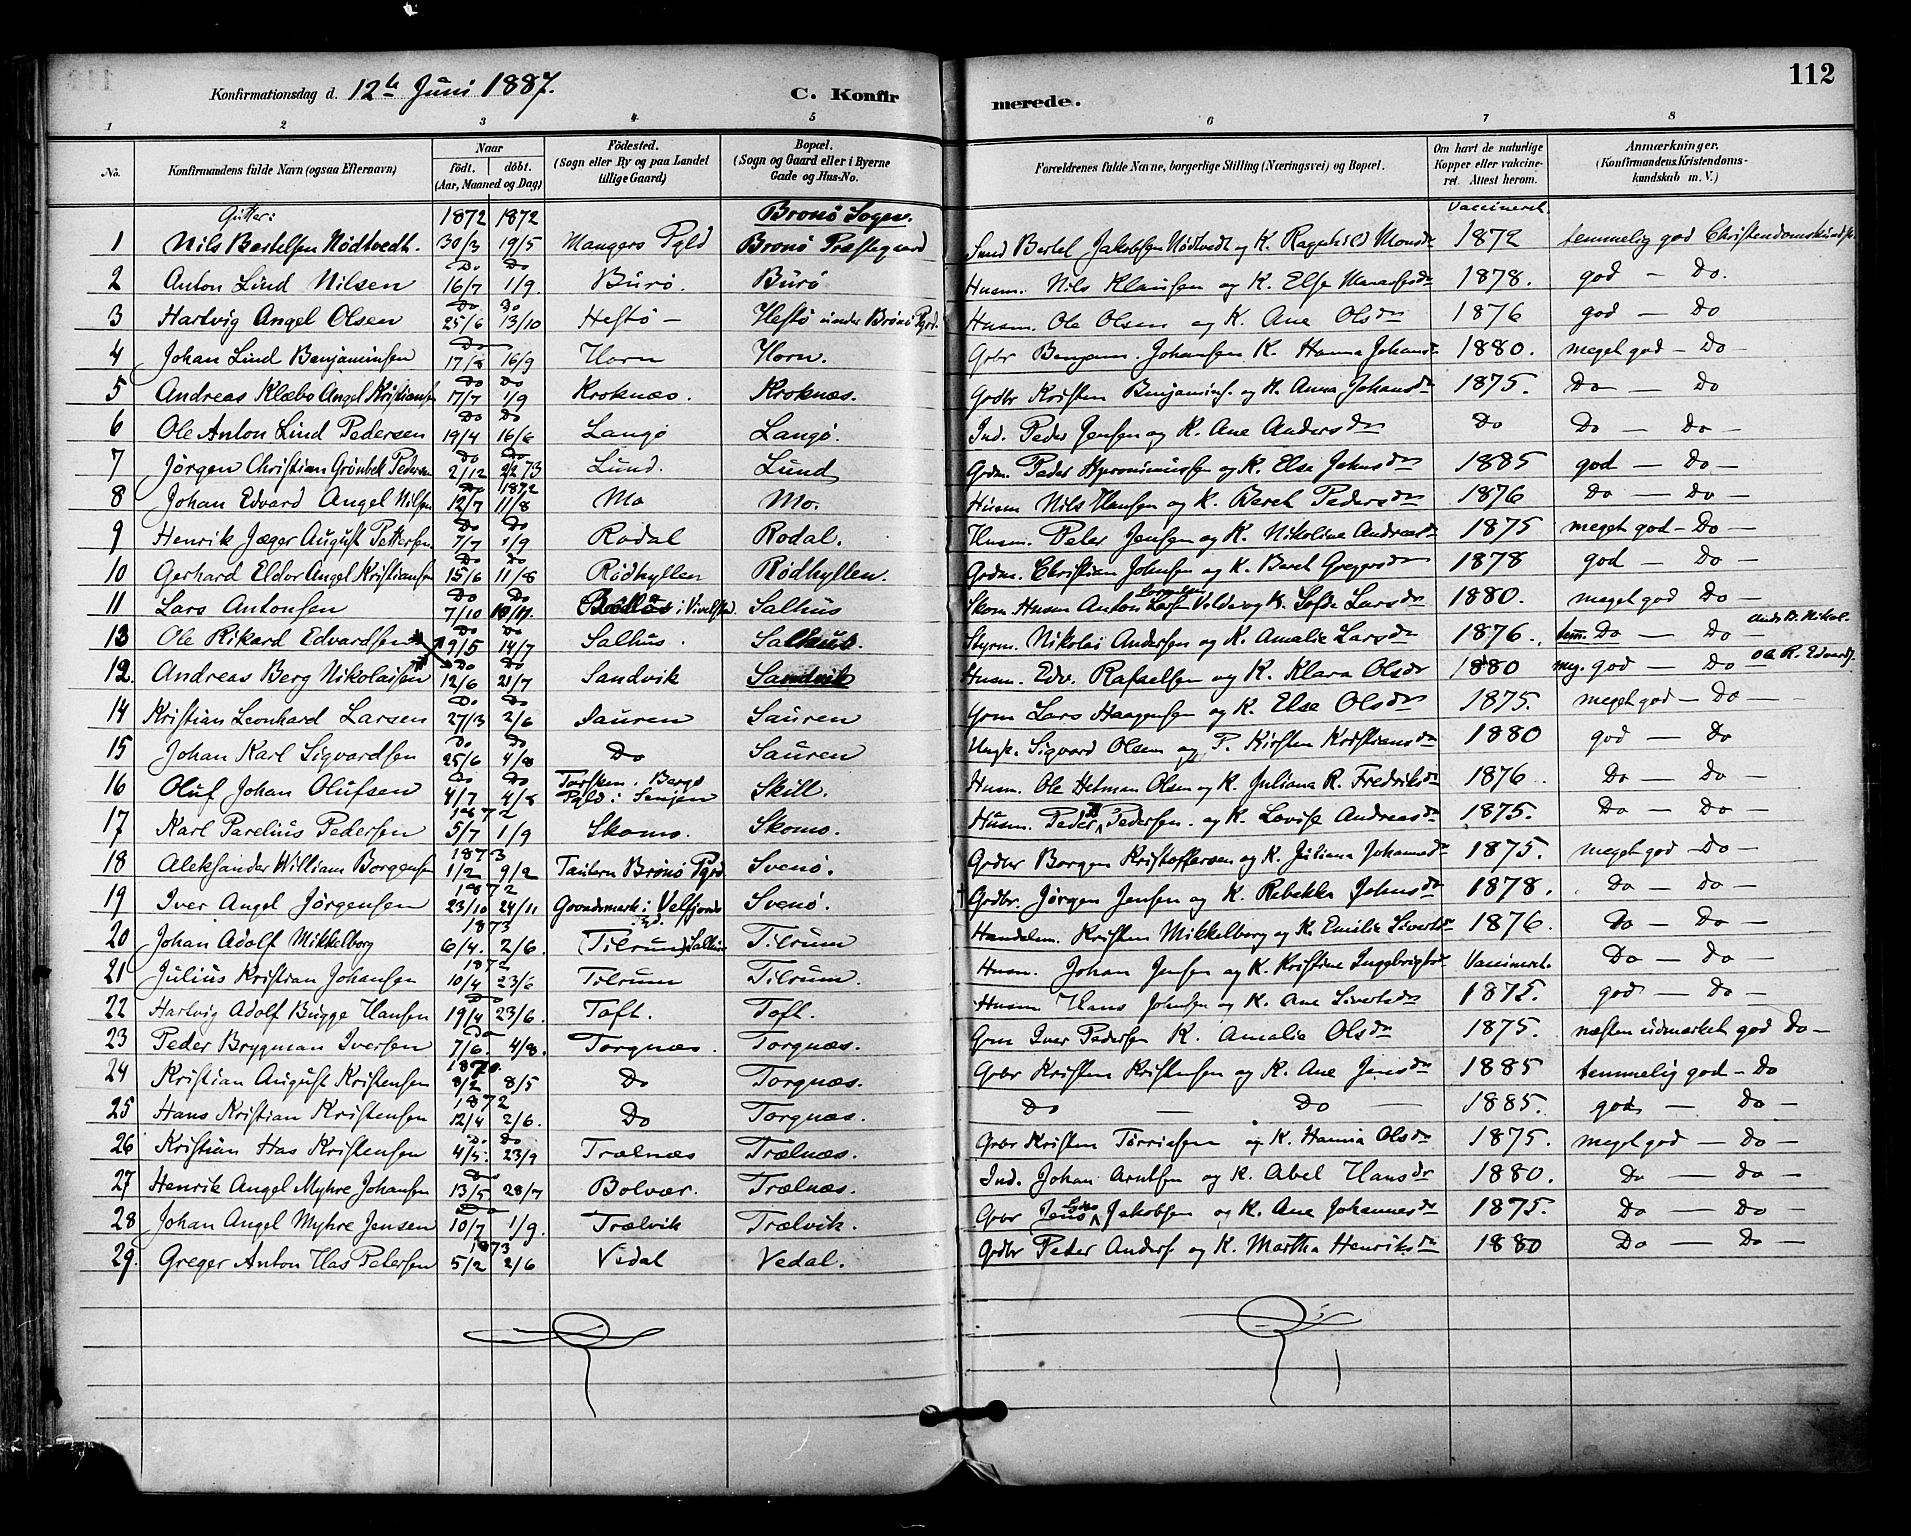 112
Konfirmationsdag d. 12te Juni 1887. C. Konfir merede.
1 2 3 4 5 6 7 8
No. Konfirmandens fulde Navn (ogsaa Efternavn) Naar födt. döbt. (Aar, Maaned og Dag) Födested. (Sogn eller By og paa Landet tillige Gaard) Bopæl. (Sogn og Gaard eller i Byerne Gade og Hus-No. Forældrenes fulde Navne, borgerlige Stilling (Næringsvei) og Bopæl. Om havt de naturlige Kopper eller vakcineret. Attest herom. Anmærkninger. (Konfirmandens Kristendomskundskab m. V.)
Gutter: 1872 1872 Brønø Sogn. Vaccineret.
1 Nils Bertelsen Nødtvedt. 30/3 19/5 Mangers Pgld Brønø Præstegaard Bertel Jakobsen Nødtvedt og K. Ragnhild Monsdr 1872 temmelig god Christendomskundsk.
Do Do
2 Anton Lind Nilsen 16/7 1/9 Burø. Burø Husm. Nils Klausen og K. Else 1878. god — Do.
Do Do
3 Hartvig Angel Olsen 25/6 13/10 Hestø — Hestø under Brønø Pgrd. Husm. Ole Olsen og K. Ane Olsdr 1876 god — Do
Do
4 Johan Lind Benjaminsen 17/8 16/9 Horn Horn. Grbr Benjam. Johansen K. Hanna Johansdr 1880. meget god — Do
Do Do
5 Andreas Klæbo Angel Kristiansen 17/7 1/9 Kroknæs. Kroknæs. Grdbr Kristen Benjamins. og K. Anna Johansdr 1875. Do — Do
Do Do
6 Ole Anton Lind Pedersen 19/4 16/6 Langø Langø. Ind. Peder Jensen og K. Ane Andersdr Do Do — Do —
Do Do
7 Jørgen Christian Grønbek Pedersen 2/12 2/2 73 Lund. Lund Grdm. Peder Hyronimussen og K. Else Johnsdr 1885 god — Do —
Do 1872
8 Johan Edvard Angel Nilsen 12/7 11/8 Mo Mo. Husm Nils Hansen og K. Beret Pedersdr 1876 Do — Do —
Do Do
9 Henrik Jæger August Pettersen. 7/7 1/9 Rodal Rodal. Husm. Peter Jensen og K. Nikoline Andreasdr 1875 meget god — Do —
Do Do
10 Gerhard Eldor Angel Kristiansen 15/6 11/8 Rødhyllen Rødhyllen. Grdm. Christian Johnsen og K. Beret Gregersdr 1878 god — Do —
Do Do
11 Lars Antonsen 7/10 10/11. i Vivelstad. Salhus Skom Husm Anton Larsen Velde og K. Sofie Larsdr 1880. meget god Do —
Do Do
13 Ole Rikard Edvardsen 9/5 14/7 Salhus. Salhus. Styrm. Nikolai Andersen og K. Amalie Larsdr 1876. tem. Do — Do — Ands B. Nikol.
Do Do
12. Andreas Berg Nikolaisen 12/6 21/7 Sandvik Sandvik Husm. Edv. Rafaelsen og K. Klara Olsdr 1880 meg. god — Do Ole R. Edvards.
Do Do
14 Kristian Leonhard Larsen 27/3 2/6 Sauren Sauren Grm Lars Haagensen og K. Else Olsdr 1875. meget god — Do —
Do Do
15 Johan Karl Sigvardsen 25/6 4/8 Do Sauren Ungk. Sigvard Olsen og P. Kirsten Kristiansdr 1880 god — Do
Do Do
16 Oluf Johan Olufsen 4/7 4/8 Torsken. Bergs Pgld i Senjen Skill. Husm. Ole Hetman Olsen og K. Juliana R. Fredriksdr 1876. Do — Do —
1872
17 Karl Parelius Pedersen 5/7 1/9 Skomo. Skomo. Husm. Peder Pedersen. og K. Lovise Andreasdr 1875. Do — Do —
1873
18 Aleksander William Borgensen 1/2 9/2 Tautern Brønø Pgrd Svenø. Grdbr Borgen Kristoffersen og K. Juliana Johannesdr 1875. meget god — Do —
1872
19 Iver Angel Jørgensen 23/10 24/11 Govandsmark i Velfjorden Svenø. Grdbr. Jørgen Jensen og K. Rebekka Johnsdr 1878. Do — Do —
1873
20 Johan Adolf Mikkelborg 6/4. 2/6. (Tilrum) Salhus Tilrum Handelsm. Kristen Mikkelborg og K. Emilie Sivertsdr 1876. Do — Do —
1872
21 Julius Kristian Johansen 10/4 23/6 Tilrum Tilrum. Husm. Johan Jensen og K. Kristine Ingebrigtsdr Vaccineret. Do — Do —
Do
22 Hartvig Adolf Bugge Hansen 19/4 23/6. Toft. Toft. Husm Hans Johnsen og K. Ane Sivertsdr 1875. god — Do —
Do
23 Peder Brygman Iversen 7/6. 4/8. Torgnæs. Torgnæs. Grm Iver Pedersen K. Amalie Olsdr 1875. næsten udmærket god Do —
1872
24 Kristian August Kristensen 8/2 8/5 Do Torgnæs. Grbr Kristen Kristensen og K. Ane Jensdr 1885 temmelig god — Do
1872
25 Hans Kristian Kristensen 12/4 2/6. Do Torgnæs. Do — Do — 1885. god — Do —
Do Do
26 Kristian Has Kristensen 4/5. 23/9 Trælnæs Trælnæs. Grbr Kristen Torrissen og K. Hanna Olsdr 1875. meget god — Do —
Do
27 Henrik Angel Myhre Johansen 13/5 28/7 Bolvær. Trælnæs. Ind. Johan Arntsen og K. Abel Hansdr 1880. Do — Do —
Do
28 Johan Angel Myhre Jensen 10/7 1/9 Trælvik Trælvik. Grbr Jens Jakobsen og K. Ane Johannesdr 1875. Do — Do —
1873
29. Greger Anton Has Petersen 5/2 2/6 Vedal Vedal. Grdbr Peder Anders. og K. Martha Henriksdr 1880 Do — Do —